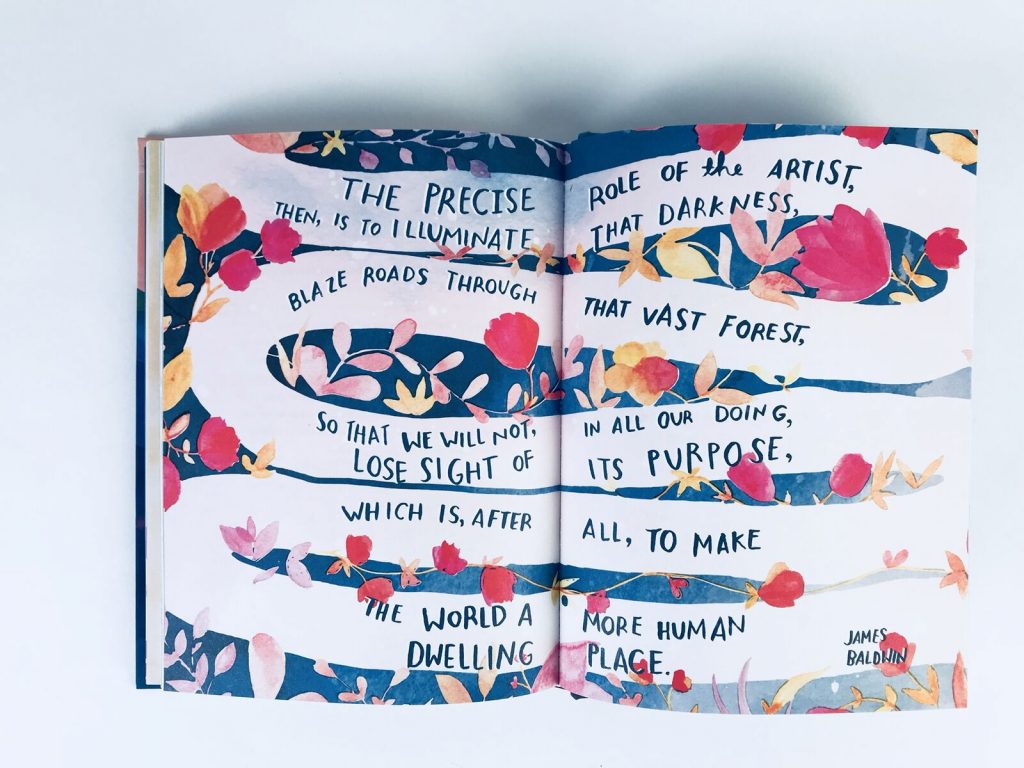 THE PRECISE ROLE OF the ARTIST,
THEN, IS TO ILLUMINATE THAT DARKNESS,
BLAZE ROADS THROUGH THAT VAST FOREST,
SO THAT WE WILL NOT, IN ALL OUR DOING,
LOSE SIGHT OF ITS PURPOSE,
WHICH IS, AFTER ALL, TO MAKE
THE WORLD A MORE HUMAN
DWELLING PLACE.
JAMES
BALDWIN